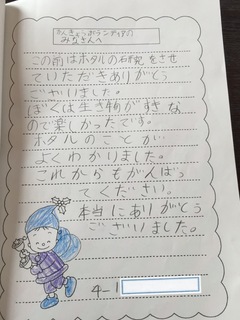 かんきょうボランティアの
みなさんへ
この前はホタルの研究をさせ
ていただきありがとう
ございました。
ぼくは生き物がすきな
ので楽しかったです。
ホタルのことが
よくわかりました。
これからもがんばっ
てください。
本当にありがとう
ございました。
4-1